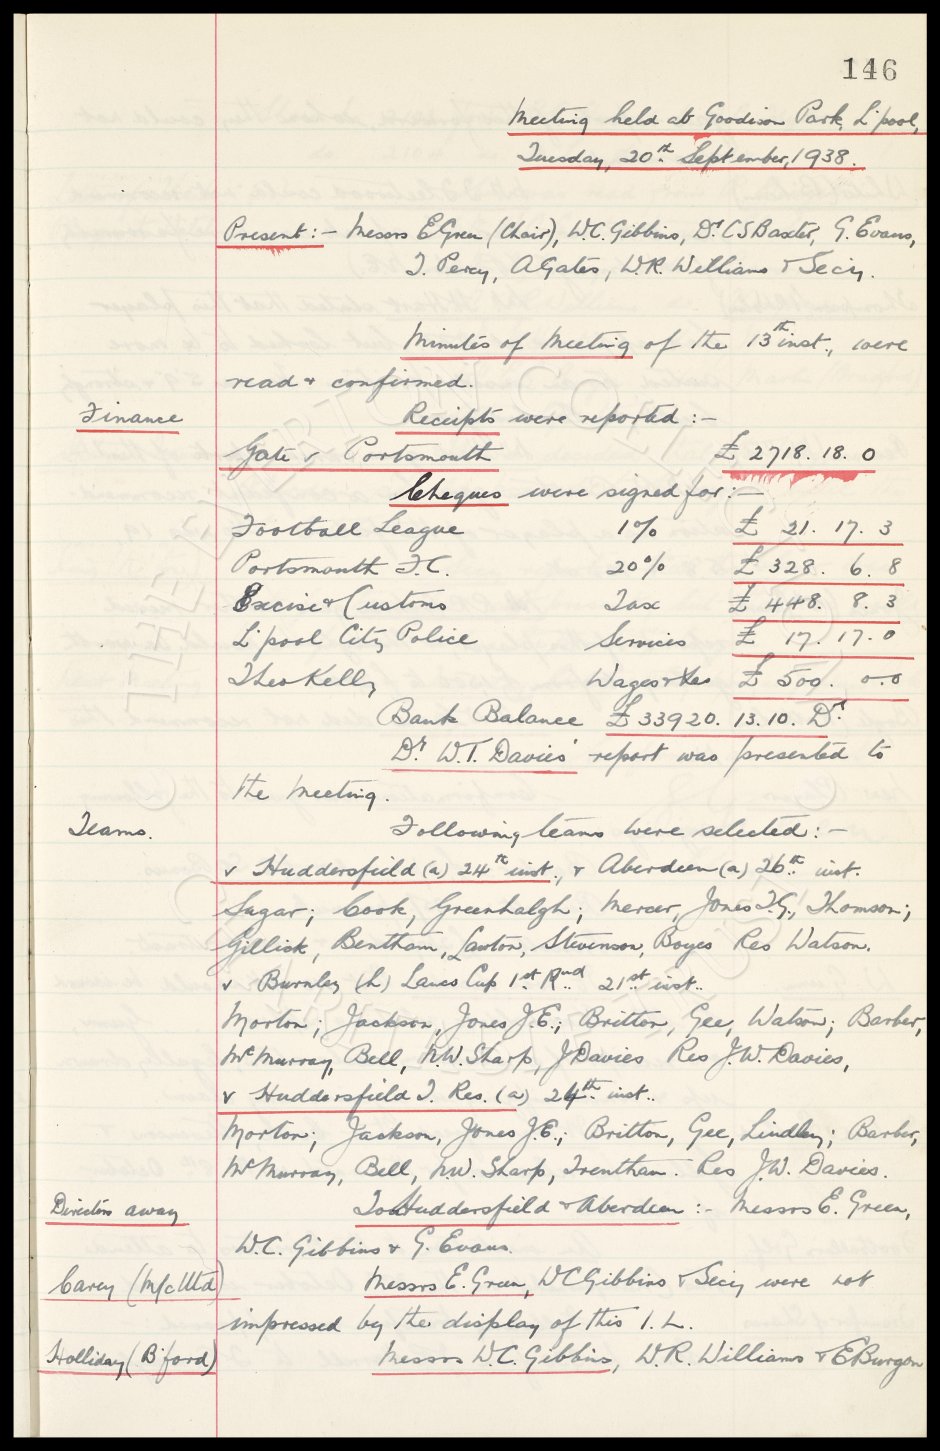 146
Meeting held at Goodison Park, L'pool,
Tuesday, 20th September, 1938.
Present:- Messrs E Green (Chair), W.C. Gibbins, Dr C S Baxter, G. Evans,
T. Percy, A Gates, W.R. Williams & Secy.
Minutes of Meeting of the 13th inst., were
read & confirmed.
Finance Receipts were reported :-
Gate v Portsmouth £ 2718. 18. 0
Cheques were signed for :-
Football League 1% £ 21. 17. 3
Portsmouth F.C. 20% £ 328. 6. 8
Excise & Customs Tax £ 448. 8. 3
L'pool City Police Services £ 17. 17. 0
Theo Kelly Wages & Xes £ 500. 0. 0
Bank Balance £ 33920. 13. 10. Dr.
Dr W.T. Davies' report was presented to
the Meeting.
Teams. Following teams were selected :-
v Huddersfield (a) 24th inst., & Aberdeen (a) 26th inst.
Sagar; Cook, Greenhalgh; Mercer, Jones T.G., Thomson;
Gillick, Bentham, Lawton, Stevenson, Boyes Res Watson.
v Burnley (h) Lancs Cup 1st Rnd 21st inst..
Morton; Jackson, Jones J.E.; Britton, Gee, Watson; Barber,
McMurray, Bell, N.W. Sharp, J Davies Res J.W. Davies,
v Huddersfield T. Res. (a) 24th inst..
Morton; Jackson, Jones J.E.; Britton, Gee, Lindley; Barber,
McMurray, Bell, N.W. Sharp, Trentham. Res J.W. Davies.
Directors away To Huddersfield & Aberdeen :- Messrs E. Green,
W.C. Gibbins & G. Evans.
Carey (M/c Utd) Messrs E. Green, W C Gibbins & Secy were not
impressed by the display of this I.L.
Holliday (B'ford) Messrs W.C. Gibbins, W.R. Williams & E Burgon